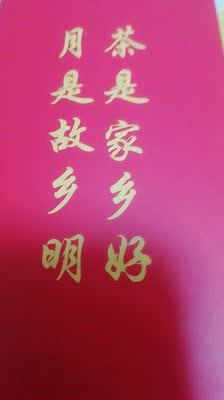 茶是家乡好
月是故乡明